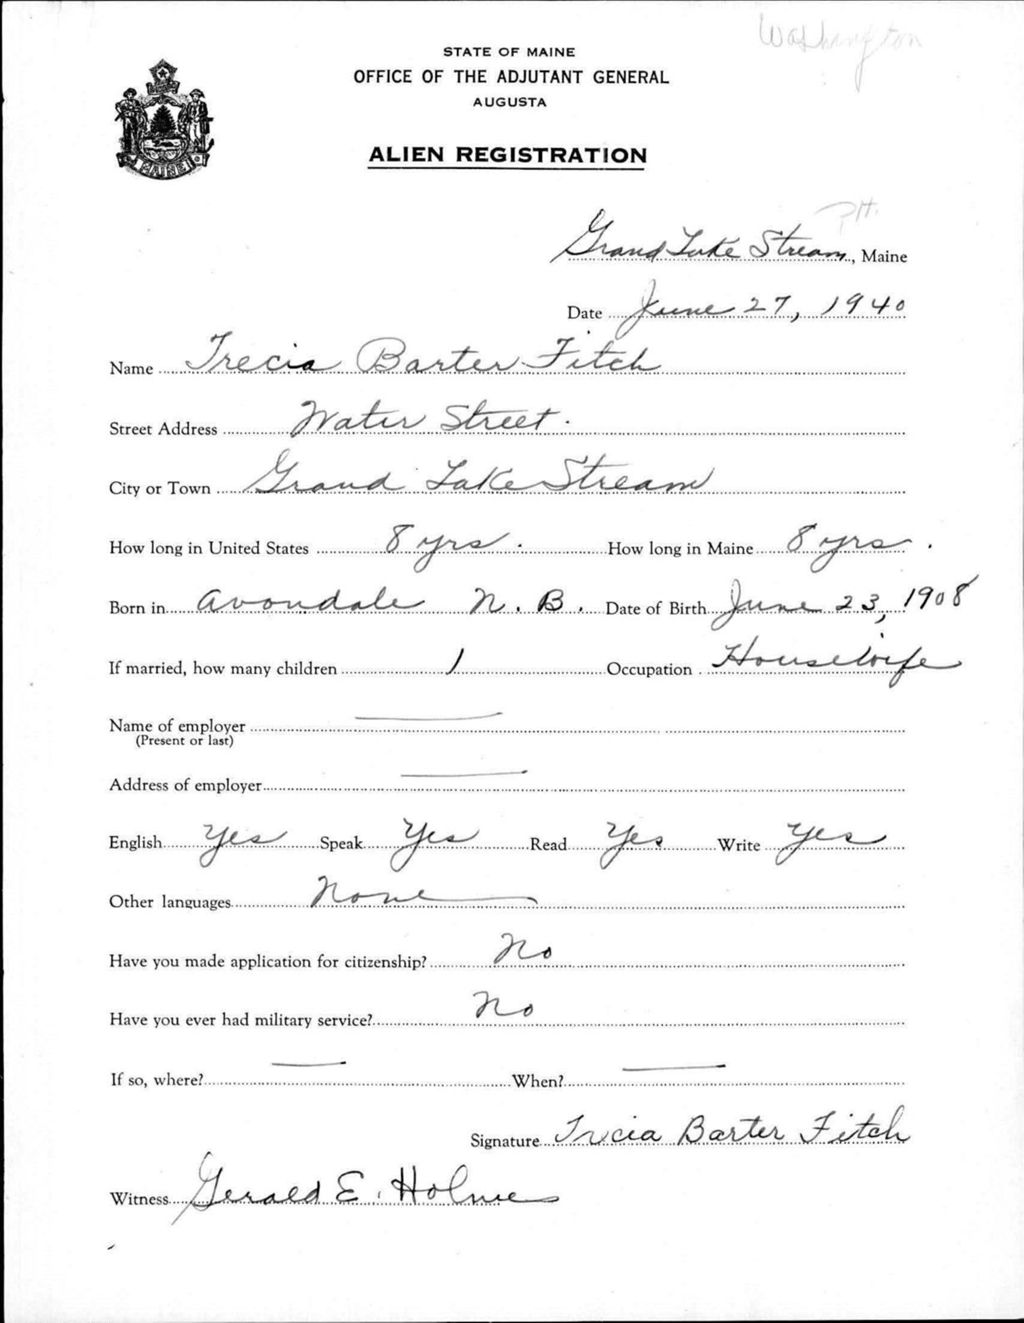 Washington
STATE OF MAINE
OFFICE OF THE ADJUTANT GENERAL
AUGUSTA
MAINE
ALIEN REGISTRATION
P.H.
Grand Lake Stream, Maine
Date June 27, 1940
Name Trecia Barter Fitch
Street Address Water Street.
City or Town Grand Lake Stream
How long in United States 8 yrs. How long in Maine 8 yrs.
Born in Avondale N. B. Date of Birth June 23, 1908
If married, how many children 1 Occupation Housewife
Name of employer
(Present or last)
Address of employer
English Yes Speak Yes Read Yes Write Yes
Other languages None
Have you made application for citizenship? No
Have you ever had military service? No
If so, where? When?
Signature Trecia Barter Fitch
Witness Gerald E. Holmes